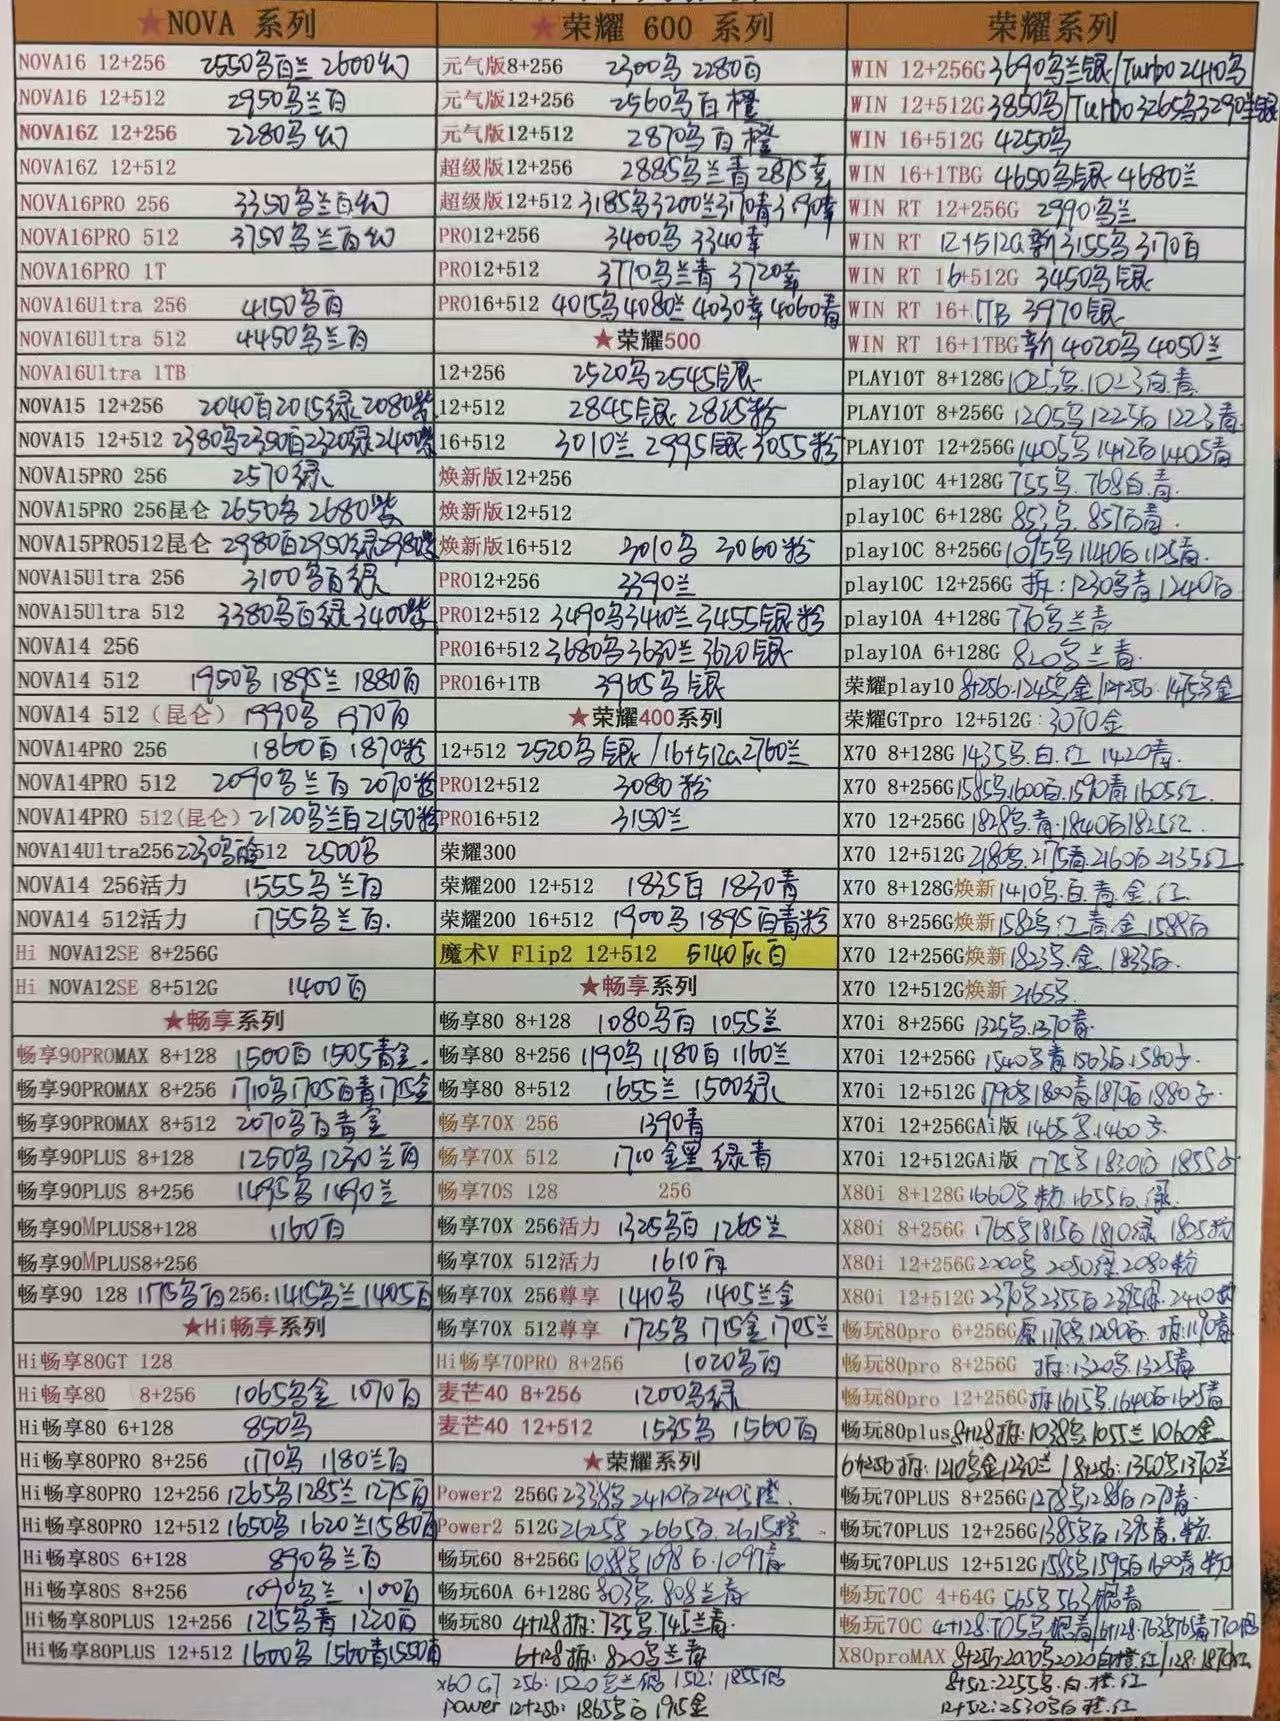 ★NOVA 系列
NOVA16 12+256 2550乌白兰 2600幻
NOVA16 12+512 2950乌兰白
NOVA16Z 12+256 2280乌幻
NOVA16Z 12+512
NOVA16PRO 256 3350乌兰白幻
NOVA16PRO 512 3750乌兰白幻
NOVA16PRO 1T
NOVA16Ultra 256 4150乌白
NOVA16Ultra 512 4450乌兰白
NOVA16Ultra 1TB
NOVA15 12+256 2040白2015绿2080紫
NOVA15 12+512 2380乌2390白2320绿2400紫
NOVA15PRO 256 2570绿
NOVA15PRO 256昆仑 2650乌 2680紫
NOVA15PRO512昆仑 2980白2950绿2980紫
NOVA15Ultra 256 3100乌白绿
NOVA15Ultra 512 3380乌白绿3400紫
NOVA14 256
NOVA14 512 1950乌 1895兰 1880白
NOVA14 512(昆仑) 1990乌 1970白
NOVA14PRO 256 1860白 1870粉
NOVA14PRO 512 2090乌兰白 2070粉
NOVA14PRO 512(昆仑) 2120乌兰白2150粉
NOVA14Ultra256 2230乌 512 2500乌
NOVA14 256活力 1555乌兰白
NOVA14 512活力 1755乌兰白.
Hi NOVA12SE 8+256G
Hi NOVA12SE 8+512G 1400白
★畅享系列
畅享90PROMAX 8+128 1500白 1505青金.
畅享90PROMAX 8+256 1710乌1705白青1715金
畅享90PROMAX 8+512 2070乌白青金
畅享90PLUS 8+128 1250乌1230兰白
畅享90PLUS 8+256 1495乌1490兰
畅享90MPLUS8+128 1160白
畅享90MPLUS8+256
畅享90 128 1175乌白256:1415乌兰1405白
★Hi畅享系列
Hi畅享80GT 128
Hi畅享80 8+256 1065乌金 1070白
Hi畅享80 6+128 850乌
Hi畅享80PRO 8+256 1170乌 1180兰白
Hi畅享80PRO 12+256 1265乌1285兰 1275白
Hi畅享80PRO 12+512 1650乌 1620兰1580白
Hi畅享80S 6+128 890乌兰白
Hi畅享80S 8+256 1090乌兰 1100白
Hi畅享80PLUS 12+256 1215乌青 1220白
Hi畅享80PLUS 12+512 1600乌 1560青1550白
★荣耀 600 系列
元气版8+256 2300乌 2280白
元气版12+256 2560乌白橙
元气版12+512 2870乌白橙
超级版12+256 2885乌兰青2875幸
超级版12+512 3185乌3200兰3170青3190幸
PRO12+256 3400乌 3340幸
PRO12+512 3770乌兰青 3720幸
PRO16+512 4015乌4080兰4030幸4060青
★荣耀500
12+256 2520乌2545银
12+512 2845银 2825粉
16+512 3010兰 2995银 3055粉
焕新版12+256
焕新版12+512
焕新版16+512 3010乌 3060粉
PRO12+256 3390兰
PRO12+512 3490乌3410兰3455银粉
PRO16+512 3680乌3630兰3620银
PRO16+1TB 3965乌银
★荣耀400系列
12+512 2520乌银/16+512G2760兰
PRO12+512 3080粉
PRO16+512 3150兰
荣耀300
荣耀200 12+512 1835白 1830青
荣耀200 16+512 1900乌 1895白青粉
魔术V Flip2 12+512 5140灰白
★畅享系列
畅享80 8+128 1080乌白 1055兰
畅享80 8+256 1190乌 1180白 1160兰
畅享80 8+512 1655兰 1500绿
畅享70X 256 1390青
畅享70X 512 1710金黑 绿青
畅享70S 128 256
畅享70X 256活力 1325乌白 1265兰
畅享70X 512活力 1610白
畅享70X 256尊享 1410乌 1405兰金
畅享70X 512尊享 1725乌 1715金 1705兰
Hi畅享70PRO 8+256 1020乌白
麦芒40 8+256 1200乌绿
麦芒40 12+512 1535乌 1560白
★荣耀系列
Power2 256G2338乌2410白2405橙.
Power2 512G2625乌 2665白.2615橙
畅玩60 8+256G1088乌1098白.1097青
畅玩60A 6+128G803乌.808兰青
畅玩80 4+128拆:735乌745兰青.
6+128拆:820乌兰青
X60 GT 256:1520乌兰 1512:1855
power 12+256:1865乌白 1915金
荣耀系列
WIN 12+256G3690乌兰银/Turbo2410乌
WIN 12+512G3850乌/Turbo3265乌3290兰银
WIN 16+512G 4250乌
WIN 16+1TBG 4650乌银 4680兰
WIN RT 12+256G 2990乌兰
WIN RT 12+512G新3155乌3170白
WIN RT 16+512G 3450乌银
WIN RT 16+1TB 3970银
WIN RT 16+1TBG新4020乌4050兰
PLAY10T 8+128G1025乌.1023白.青
PLAY10T 8+256G 1205乌1225白1223青
PLAY10T 12+256G1405乌1412白1405青
play10C 4+128G755乌.768白.青.
play10C 6+128G 853乌.857白青.
play10C 8+256G1095乌1140白1125青.
play10C 12+256G 拆:1230乌青1240白
play10A 4+128G 776乌兰青
play10A 6+128G 820乌兰青.
荣耀play10 8+256.1245乌金|12+256.1475乌金
荣耀GTpro 12+512G:3070金
X70 8+128G1435乌.白.红 1420青.
X70 8+256G1585乌1600白.1590青1605红.
X70 12+256G1828乌.青.1840白1825红.
X70 12+512G2180乌.2175青2160白2135红
X70 8+128G焕新1410乌.白.青.金.红.
X70 8+256G焕新1582乌.红.青.金.1588白
X70 12+256G焕新1823乌.金.1833白.
X70 12+512G焕新2165乌.
X70i 8+256G 1325乌.1370青.
X70i 12+256G 1540乌青1563白1580子.
X70i 12+512G1790乌1800青1870白1880子.
X70i 12+256GAi版1465乌.1460子.
X70i 12+512GAi版 1775乌1830白 1855子
X80i 8+128G1660乌.粉.1655白.绿.
X80i 8+256G1765乌1815白1810绿 1825粉
X80i 12+256G2000乌.2050绿.2080粉
X80i 12+512G2370乌2355白2395绿.2410粉
畅玩80pro 6+256G原1178乌1280白.拆:1170青
畅玩80pro 8+256G 拆:1320乌.1325青
畅玩80pro 12+256G拆1615乌.1640白1625青
畅玩80plus8+128拆:1038乌1055兰1060金.
6+256拆:1210乌金1230兰|8+256:1350乌1370兰
畅玩70PLUS 8+256G1278乌1288白1270青.
畅玩70PLUS 12+256G1385乌白1395青.粉
畅玩70PLUS 12+512G1585乌1595白1600青粉
畅玩70C 4+64G 565乌563银青
畅玩70C 4+128.705乌.银青|6+128.763乌765青770银
X80proMAX 8+256:2000乌2020白橙.红/128:1870红
8+512:2255乌.白.橙.红
12+512:2530乌白橙.红